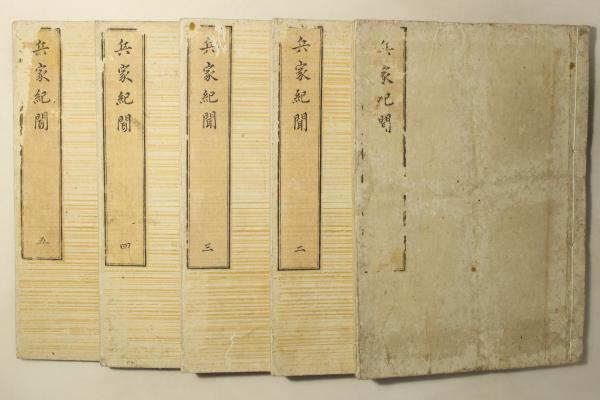 兵家紀聞
兵家紀聞
二
兵家紀聞
三
兵家紀聞
四
兵家紀聞
五